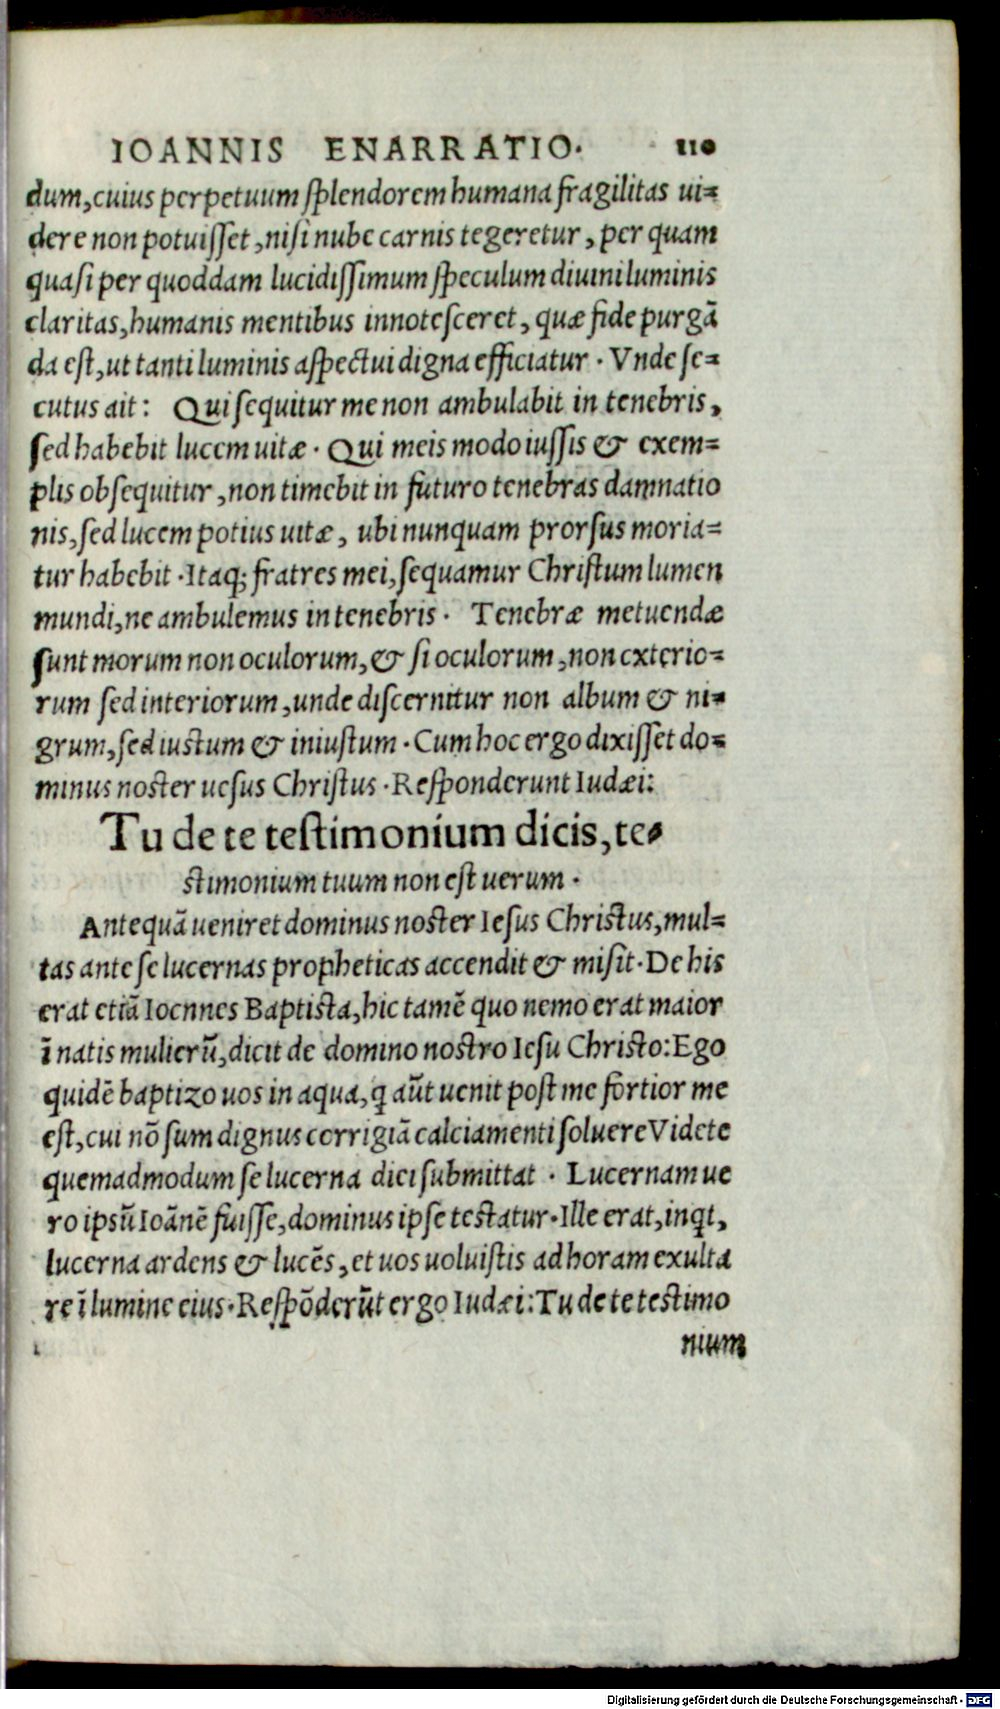 IOANNIS ENARRATIO. 110
dum, cuius perpetuum splendorem humana fragilitas ui=
dere non potuisset, nisi nube carnis tegeretur, per quam
quasi per quoddam lucidissimum speculum diuini luminis
claritas, humanis mentibus innotesceret, quæ fide purgã
da est, ut tanti luminis aspectui digna efficiatur. Vnde se=
cutus ait: Qui sequitur me non ambulabit in tenebris,
sed habebit lucem uitæ. Qui meis modo iussis & exem=
plis obsequitur, non timebit in futuro tenebras damnatio
nis, sed lucem potius uitæ, ubi nunquam prorsus moria=
tur habebit. Itaq; fratres mei, sequamur Christum lumen
mundi, ne ambulemus in tenebris. Tenebræ metuendæ
sunt morum non oculorum, & si oculorum, non exterio=
rum sed interiorum, unde discernitur non album & ni=
grum, sed iustum & iniustum. Cum hoc ergo dixisset do=
minus noster uesus Christus. Responderunt Iudæi:
Tu de te testimonium dicis, te=
stimonium tuum non est uerum.
Antequã ueniret dominus noster Iesus Christus, mul=
tas ante se lucernas propheticas accendit & misit. De his
erat etiã Ioennes Baptista, hic tamẽ quo nemo erat maior
ĩ natis mulierũ, dicit de domino nostro Iesu Christo: Ego
quidẽ baptizo uos in aqua, q̃ aũt uenit post me fortior me
est, cui nõ sum dignus corrigiã calciamenti soluere Videte
quemadmodum se lucerna dici submittat. Lucernam ue
ro ipsũ Ioãnẽ fuisse, dominus ipse testatur. Ille erat, inq̃t,
lucerna ardens & lucẽs, et uos uoluistis ad horam exulta
re ĩ lumine eius. Respõderũt ergo Iudæi: Tu de te testimo
nium
Digitalisierung gefördert durch die Deutsche Forschungsgemeinschaft - DFG